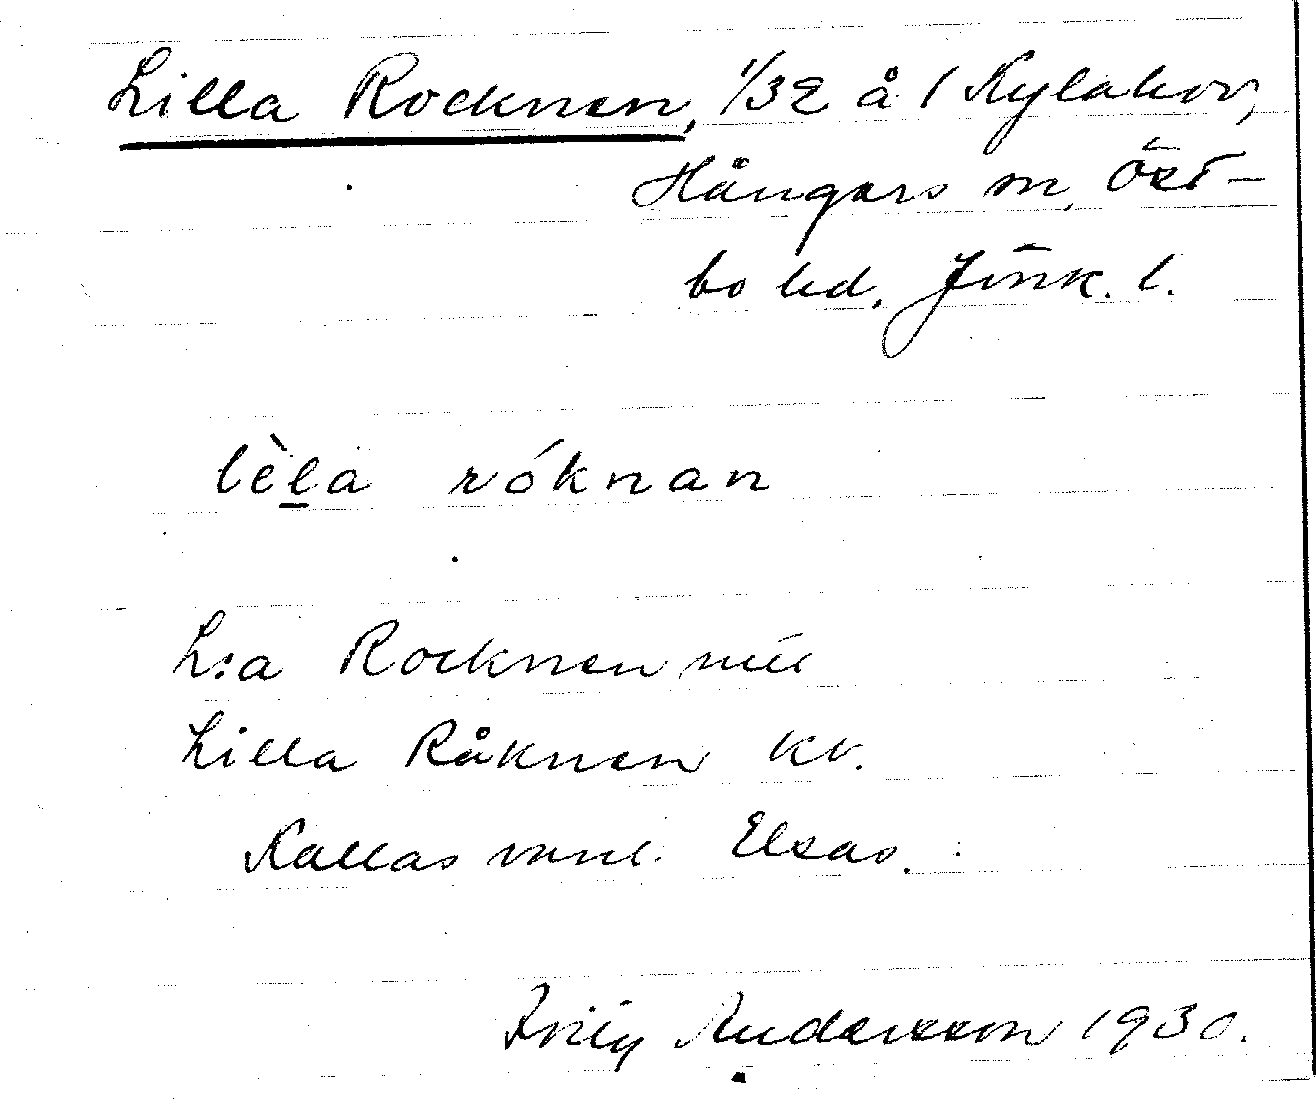 Lilla Rocknen, 1/32 å 1 Kylahov,
Hångers sn, Öst-
bo hd, Jönk. l.
lèla róknan
L:a Rocknen
Lilla Råknen kv.
Kallas vanl. Elsas.
Andersson 1930.